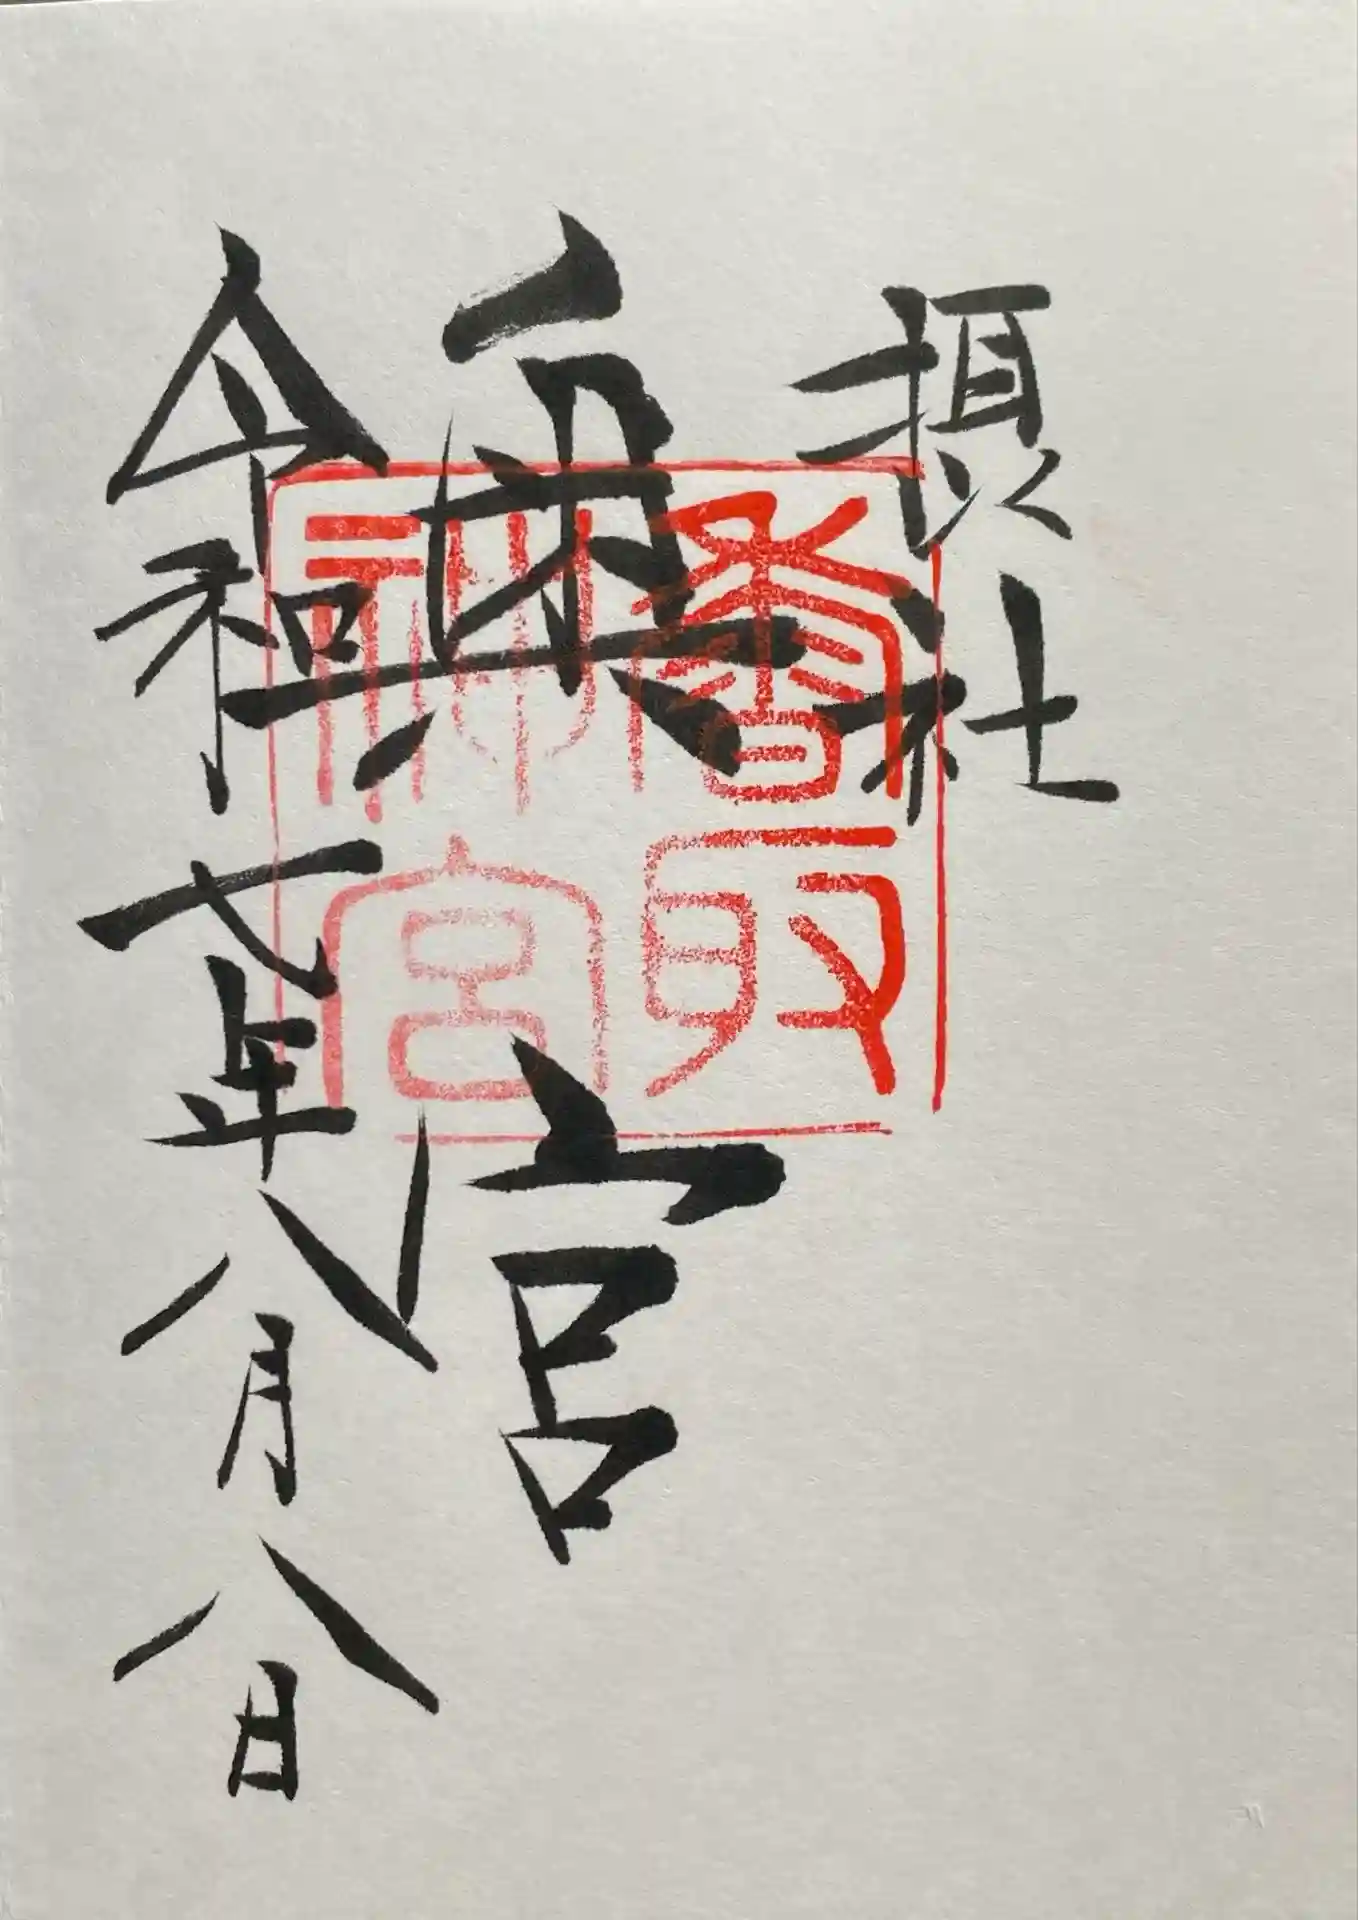 摂社
奥宮
令和七年八月八日
香取
神宮